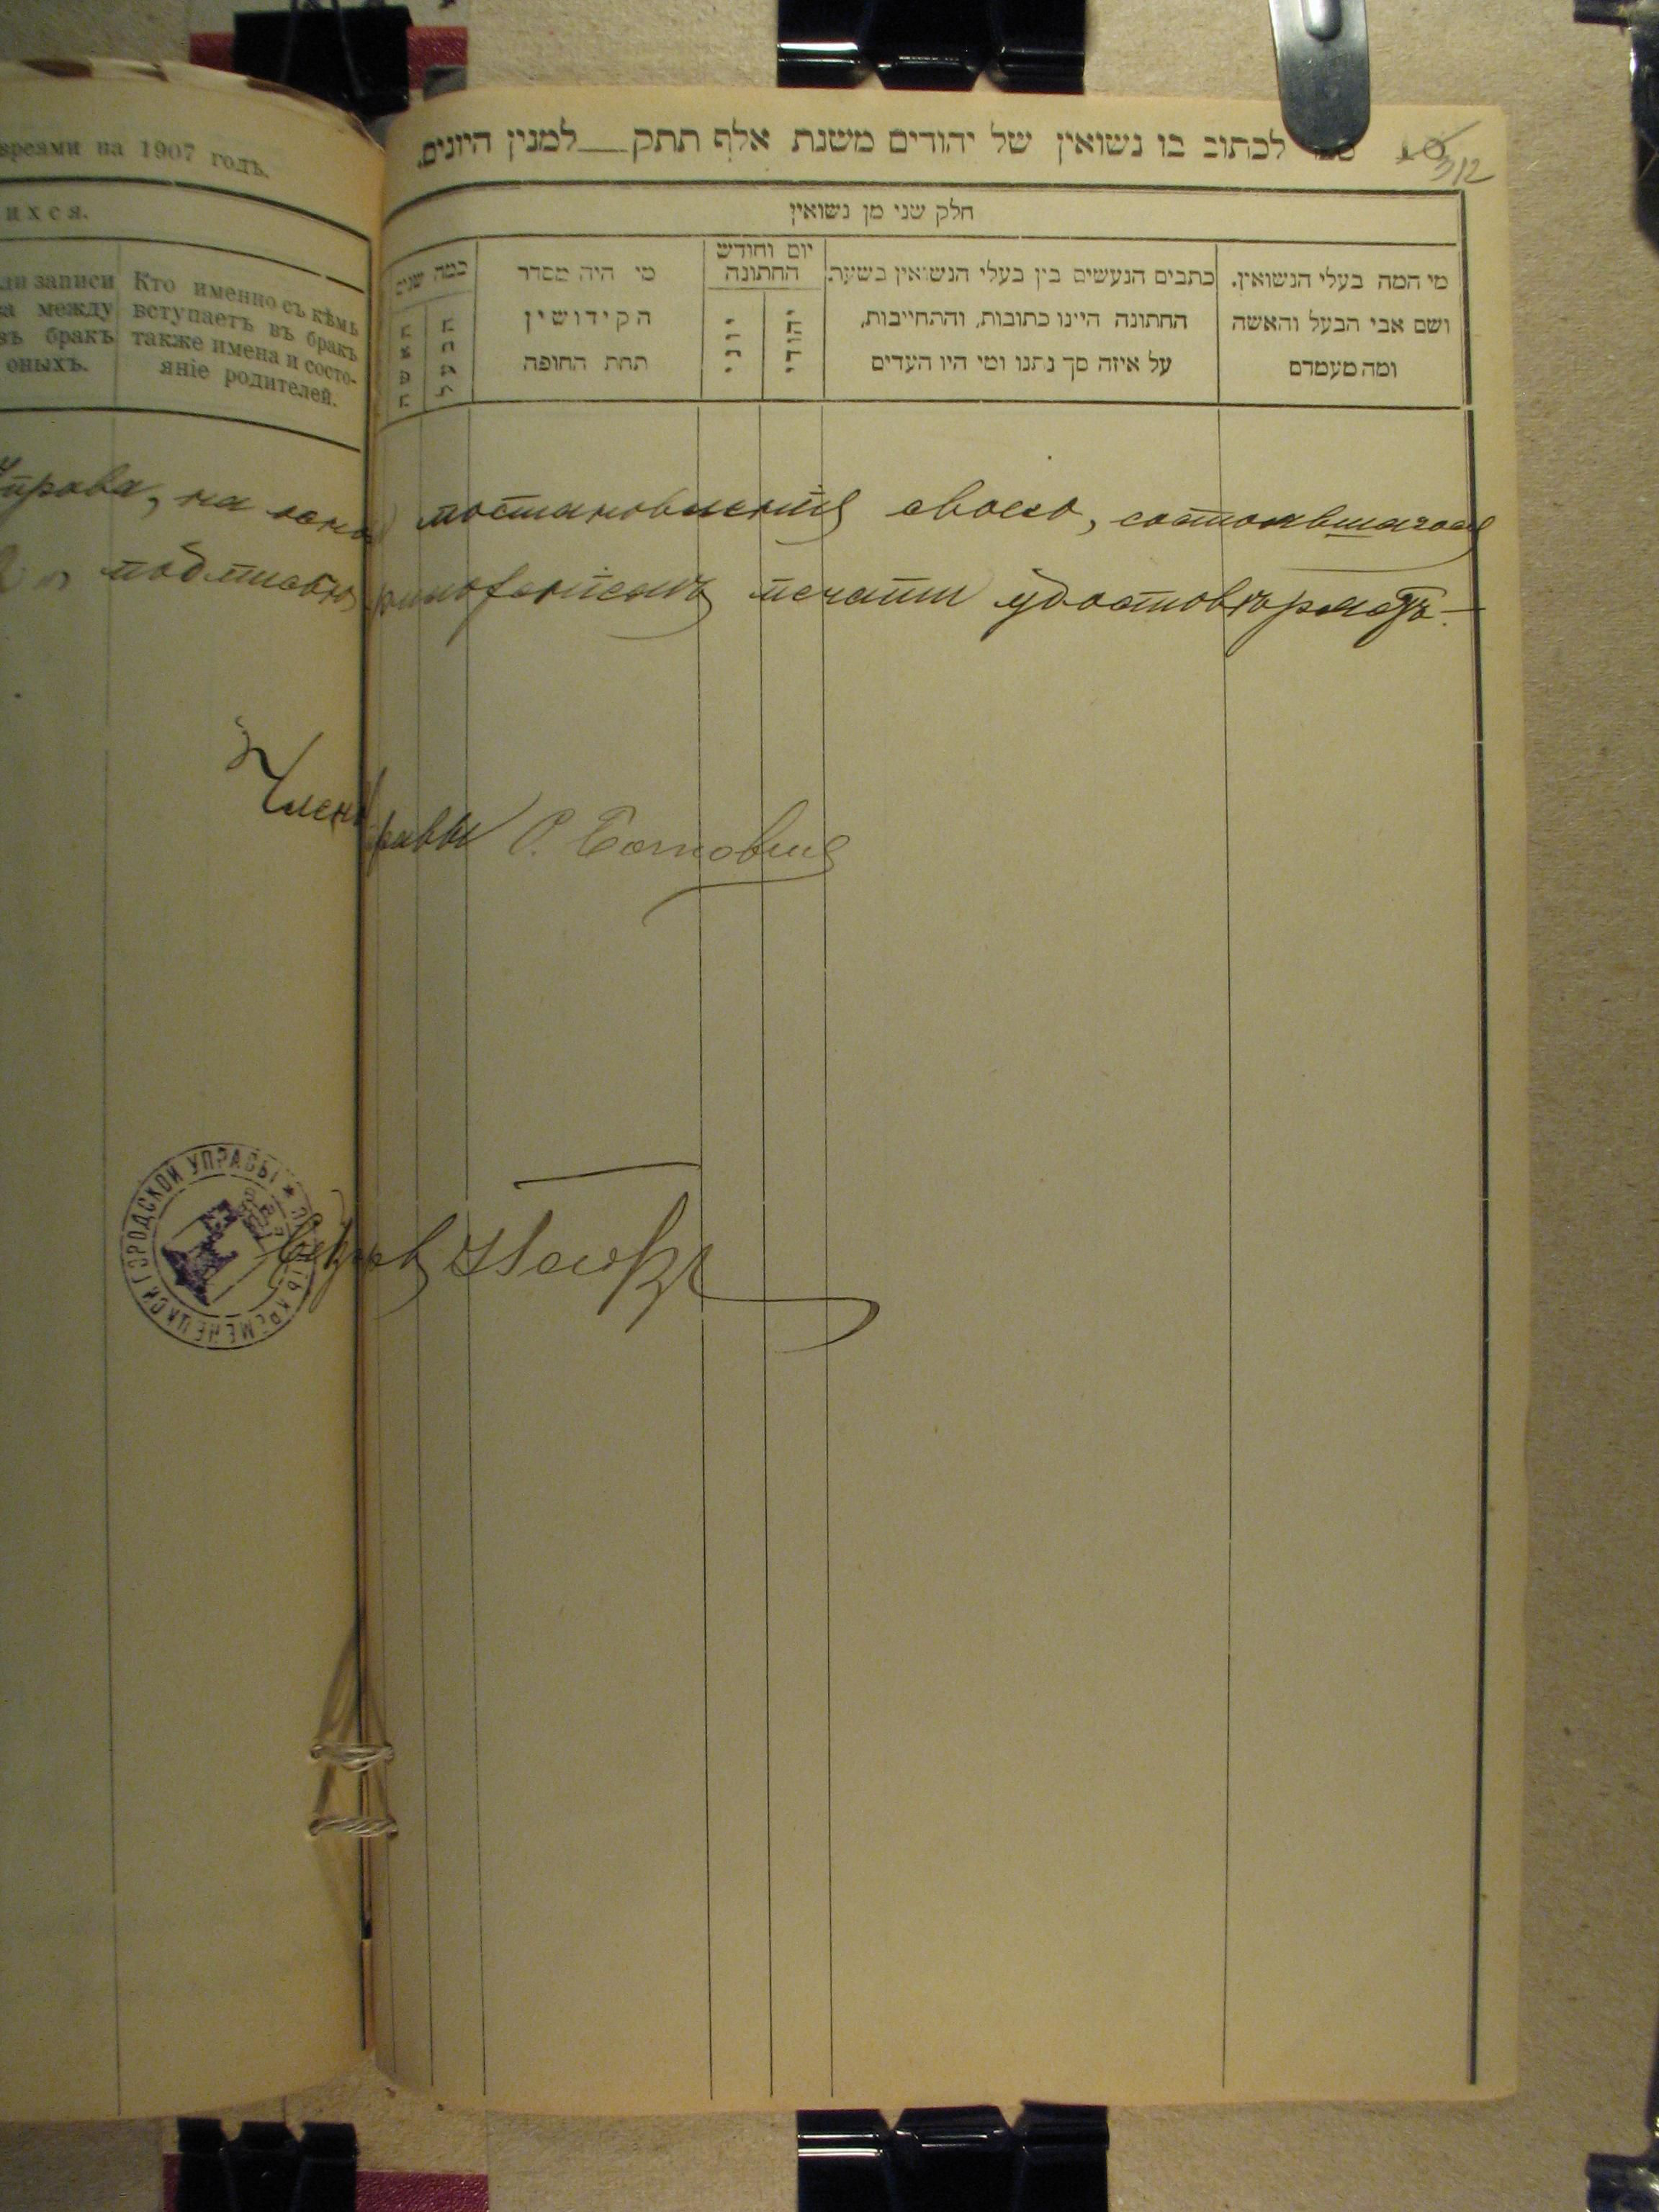 вреями на 1907 годъ.
ихся.
ди записи
а между
въ бракъ
оныхъ.
Кто именно съ кѣмъ
вступаетъ въ бракъ
также имена и состо-
яніе родителей.
לכתוב בו נשואין של יהודים משנת אלף תתק___למנין היונים.
10
312
חלק שני מן נשואין
מי המה בעלי הנשואין.
ושם אבי הבעל והאשה
ומה מעמדם
כתבים הנעשים בין בעלי הנשואין בשעת
החתונה היינו כתובות, והתחייבות,
על איזה סך נתנו ומי היו העדים
יום וחודש
החתונה
יהודי
יוני
מי היה מסדר
הקידושין
תחת החופה
כמה שנים
הבעל
האשה
Управа, на осно постановленія своего, состоявшагося
подписью приложеніемъ печати удостовѣряетъ.—
Членъ
равы
ПЕЧАТЬ КРЕМЕНЕЦКОЙ ГОРОДСКОЙ УПРАВЫ